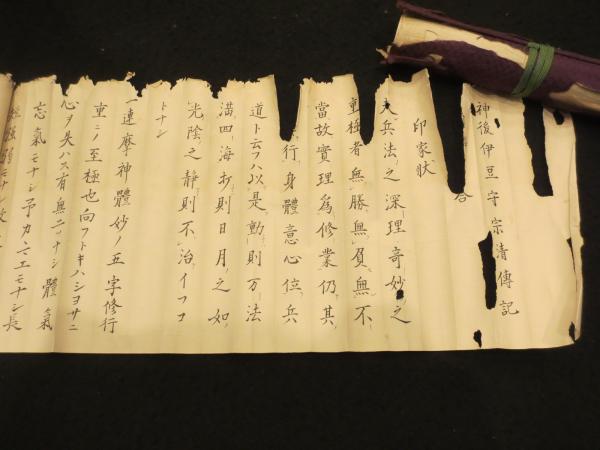 神後伊豆守宗清傳記
印家状
夫兵法之深理奇妙之
重極者無勝無負無不
當故實理為修業仍其
行身體意心位兵
道ト云フハ以是動則万法
満四海、則日月之如
光陰之静則不治イフコ
トナシ
一達摩神體妙ノ五字修行
重ニノ至極也向フトキハシヨサニ
心ヲ失ハス有無二ツナシ體氣
忘氣モナシ予カ エモナシ長